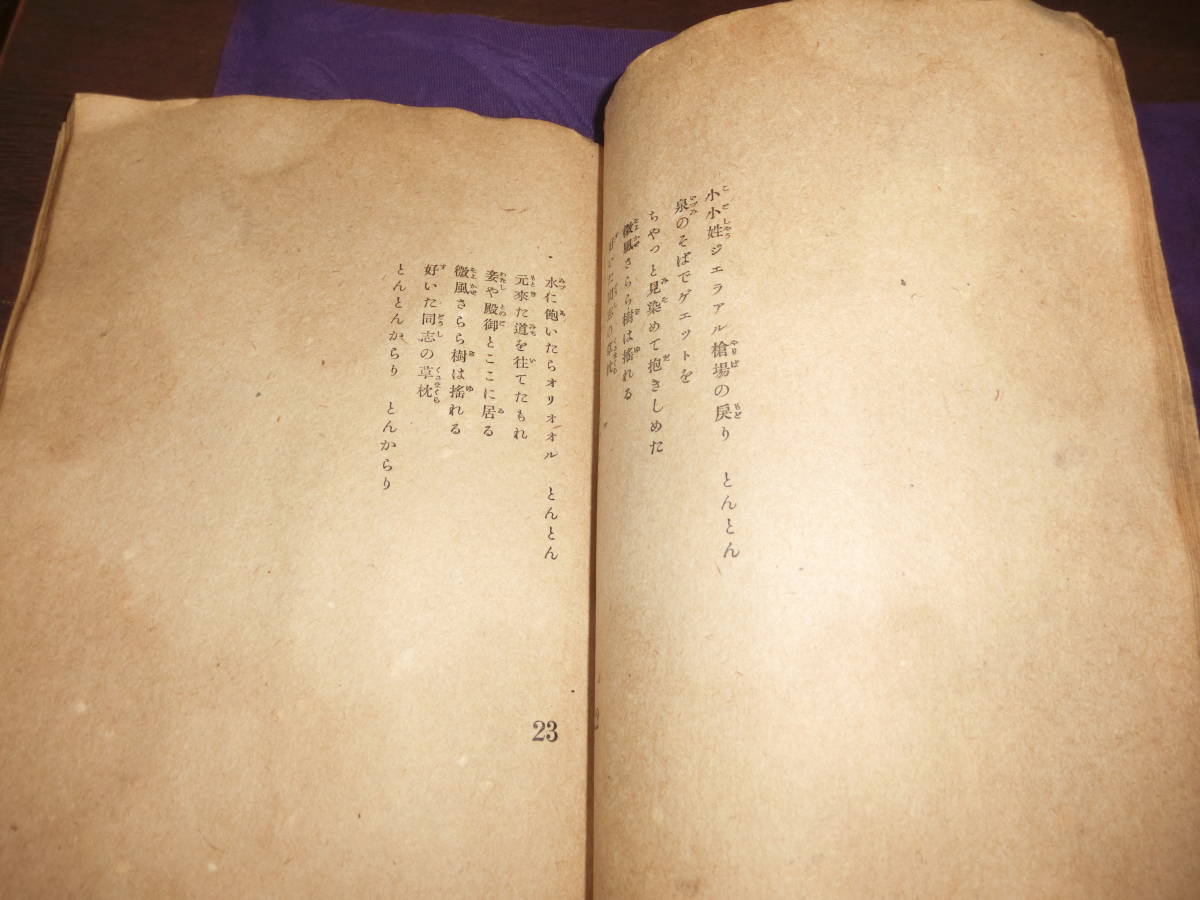 小小姓ジエラアル槍場の戻り　とんとん
泉のそばでゲエットを
ちやつと見染めて抱きしめた
微風さらら樹は搖れる
水に飽いたらオリオオル　とんとん
元來た道を往てたもれ
妾や殿御とここに居る
微風さらら樹は搖れる
好いた同志の草枕
とんとんからり　とんからり
23